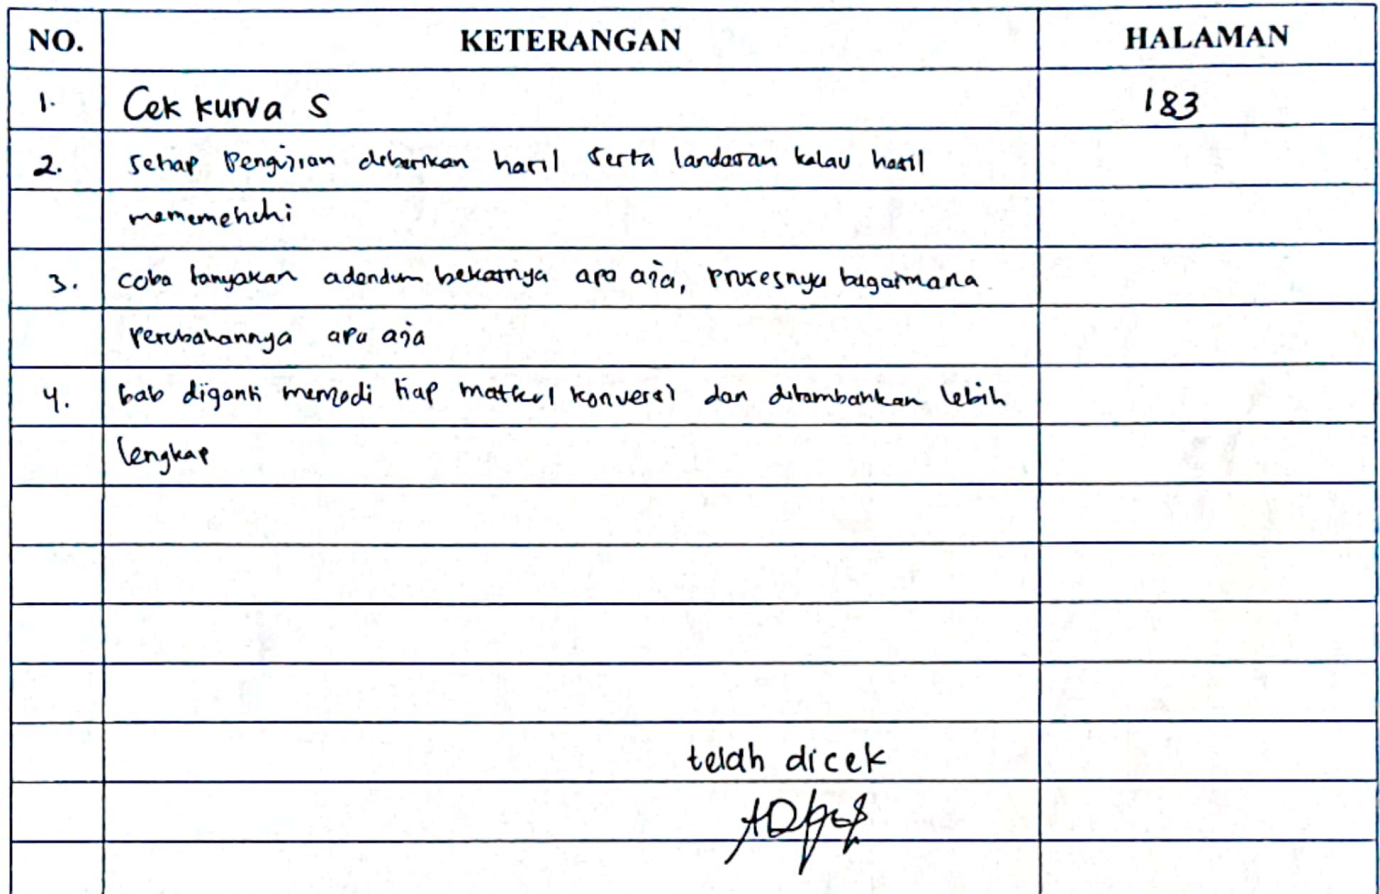 NO. KETERANGAN HALAMAN
1. Cek kurva S 183
2. setiap pengujian diberikan hasil serta landasan kalau hasil
mememenuhi
3. coba tanyakan adendum bekasnya apa aja, prosesnya bagaimana
perubahannya apa aja
4. bab diganti menjadi tiap matkul konversi dan ditambahkan lebih
lengkap
telah dicek